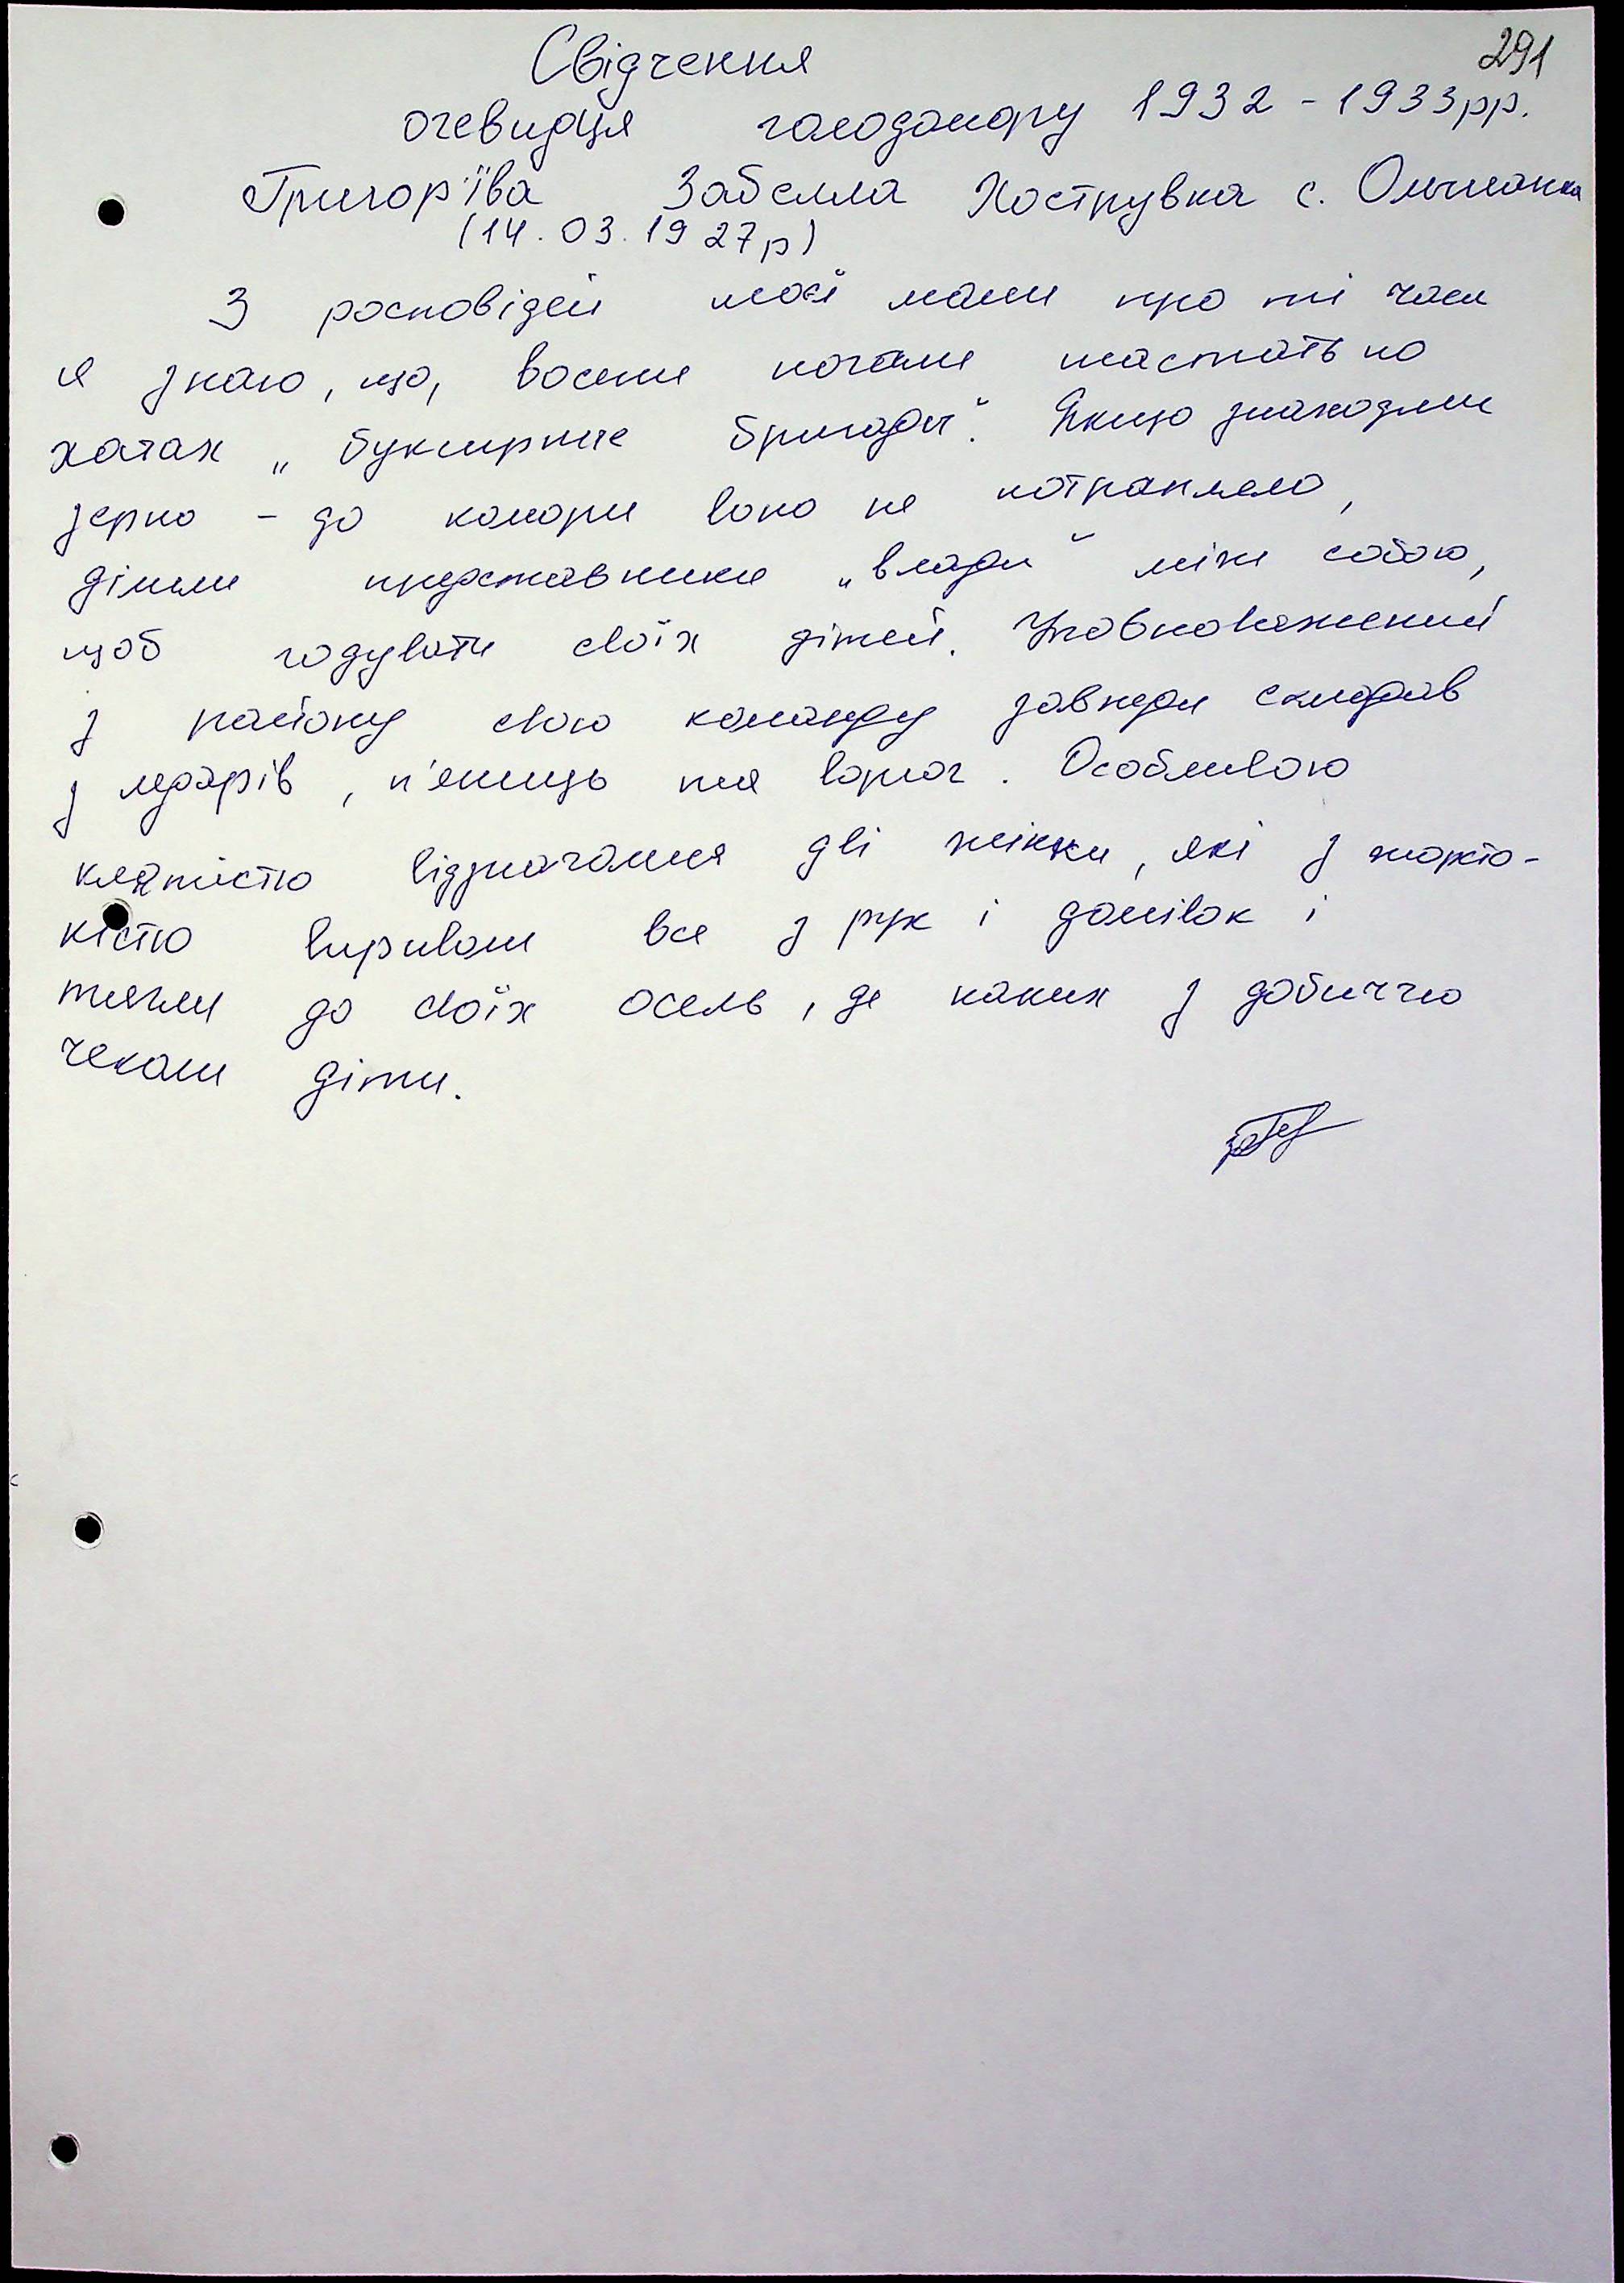 291
Свідчення
очевидця голодомору 1932 - 1933 рр.
Григор'їва Забелла Хострувка с. Ольшанка
(14. 03. 1927 р)
З росповідей моєї мами про ті часи
я знаю, що, восени почали шастать по
хатах „буксирные бригады". Якщо знаходили
зерно - до комори воно не потрапляло,
ділили представники „влади" між собою,
щоб годувати своїх дітей. Уповноважений
з району свою команду завжди складав
з ледарів, п'яниць та ворюг. Особливою
клятістю відзначалися дві жінки, які з жорсто-
кістю виривали все з рук і домівок і
тягли до своїх осель, де на них з добиччю
чекали діти.